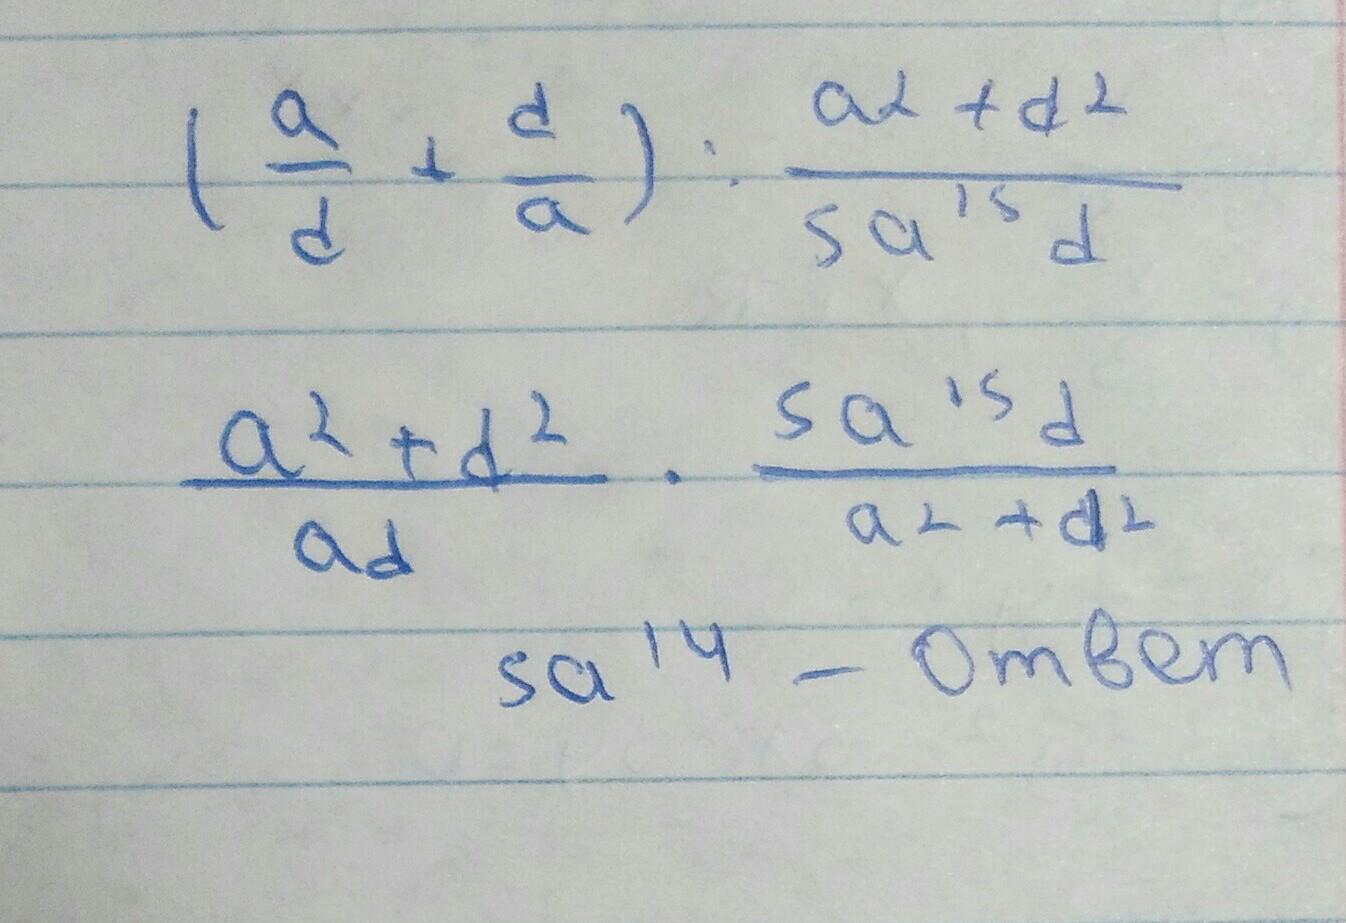 (a/d + d/a) : (a² + d²)/(5a¹⁵d)
(a² + d²)/(ad) · (5a¹⁵d)/(a² + d²)
5a¹⁴ – Ответ